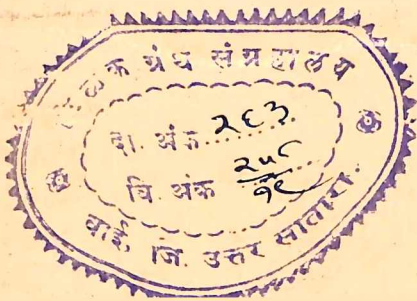 टिळक ग्रंथ संग्रहालय
दा. अंक २६३
वि. अंक २५८/१९
वाई, जि. उत्तर सातारा.